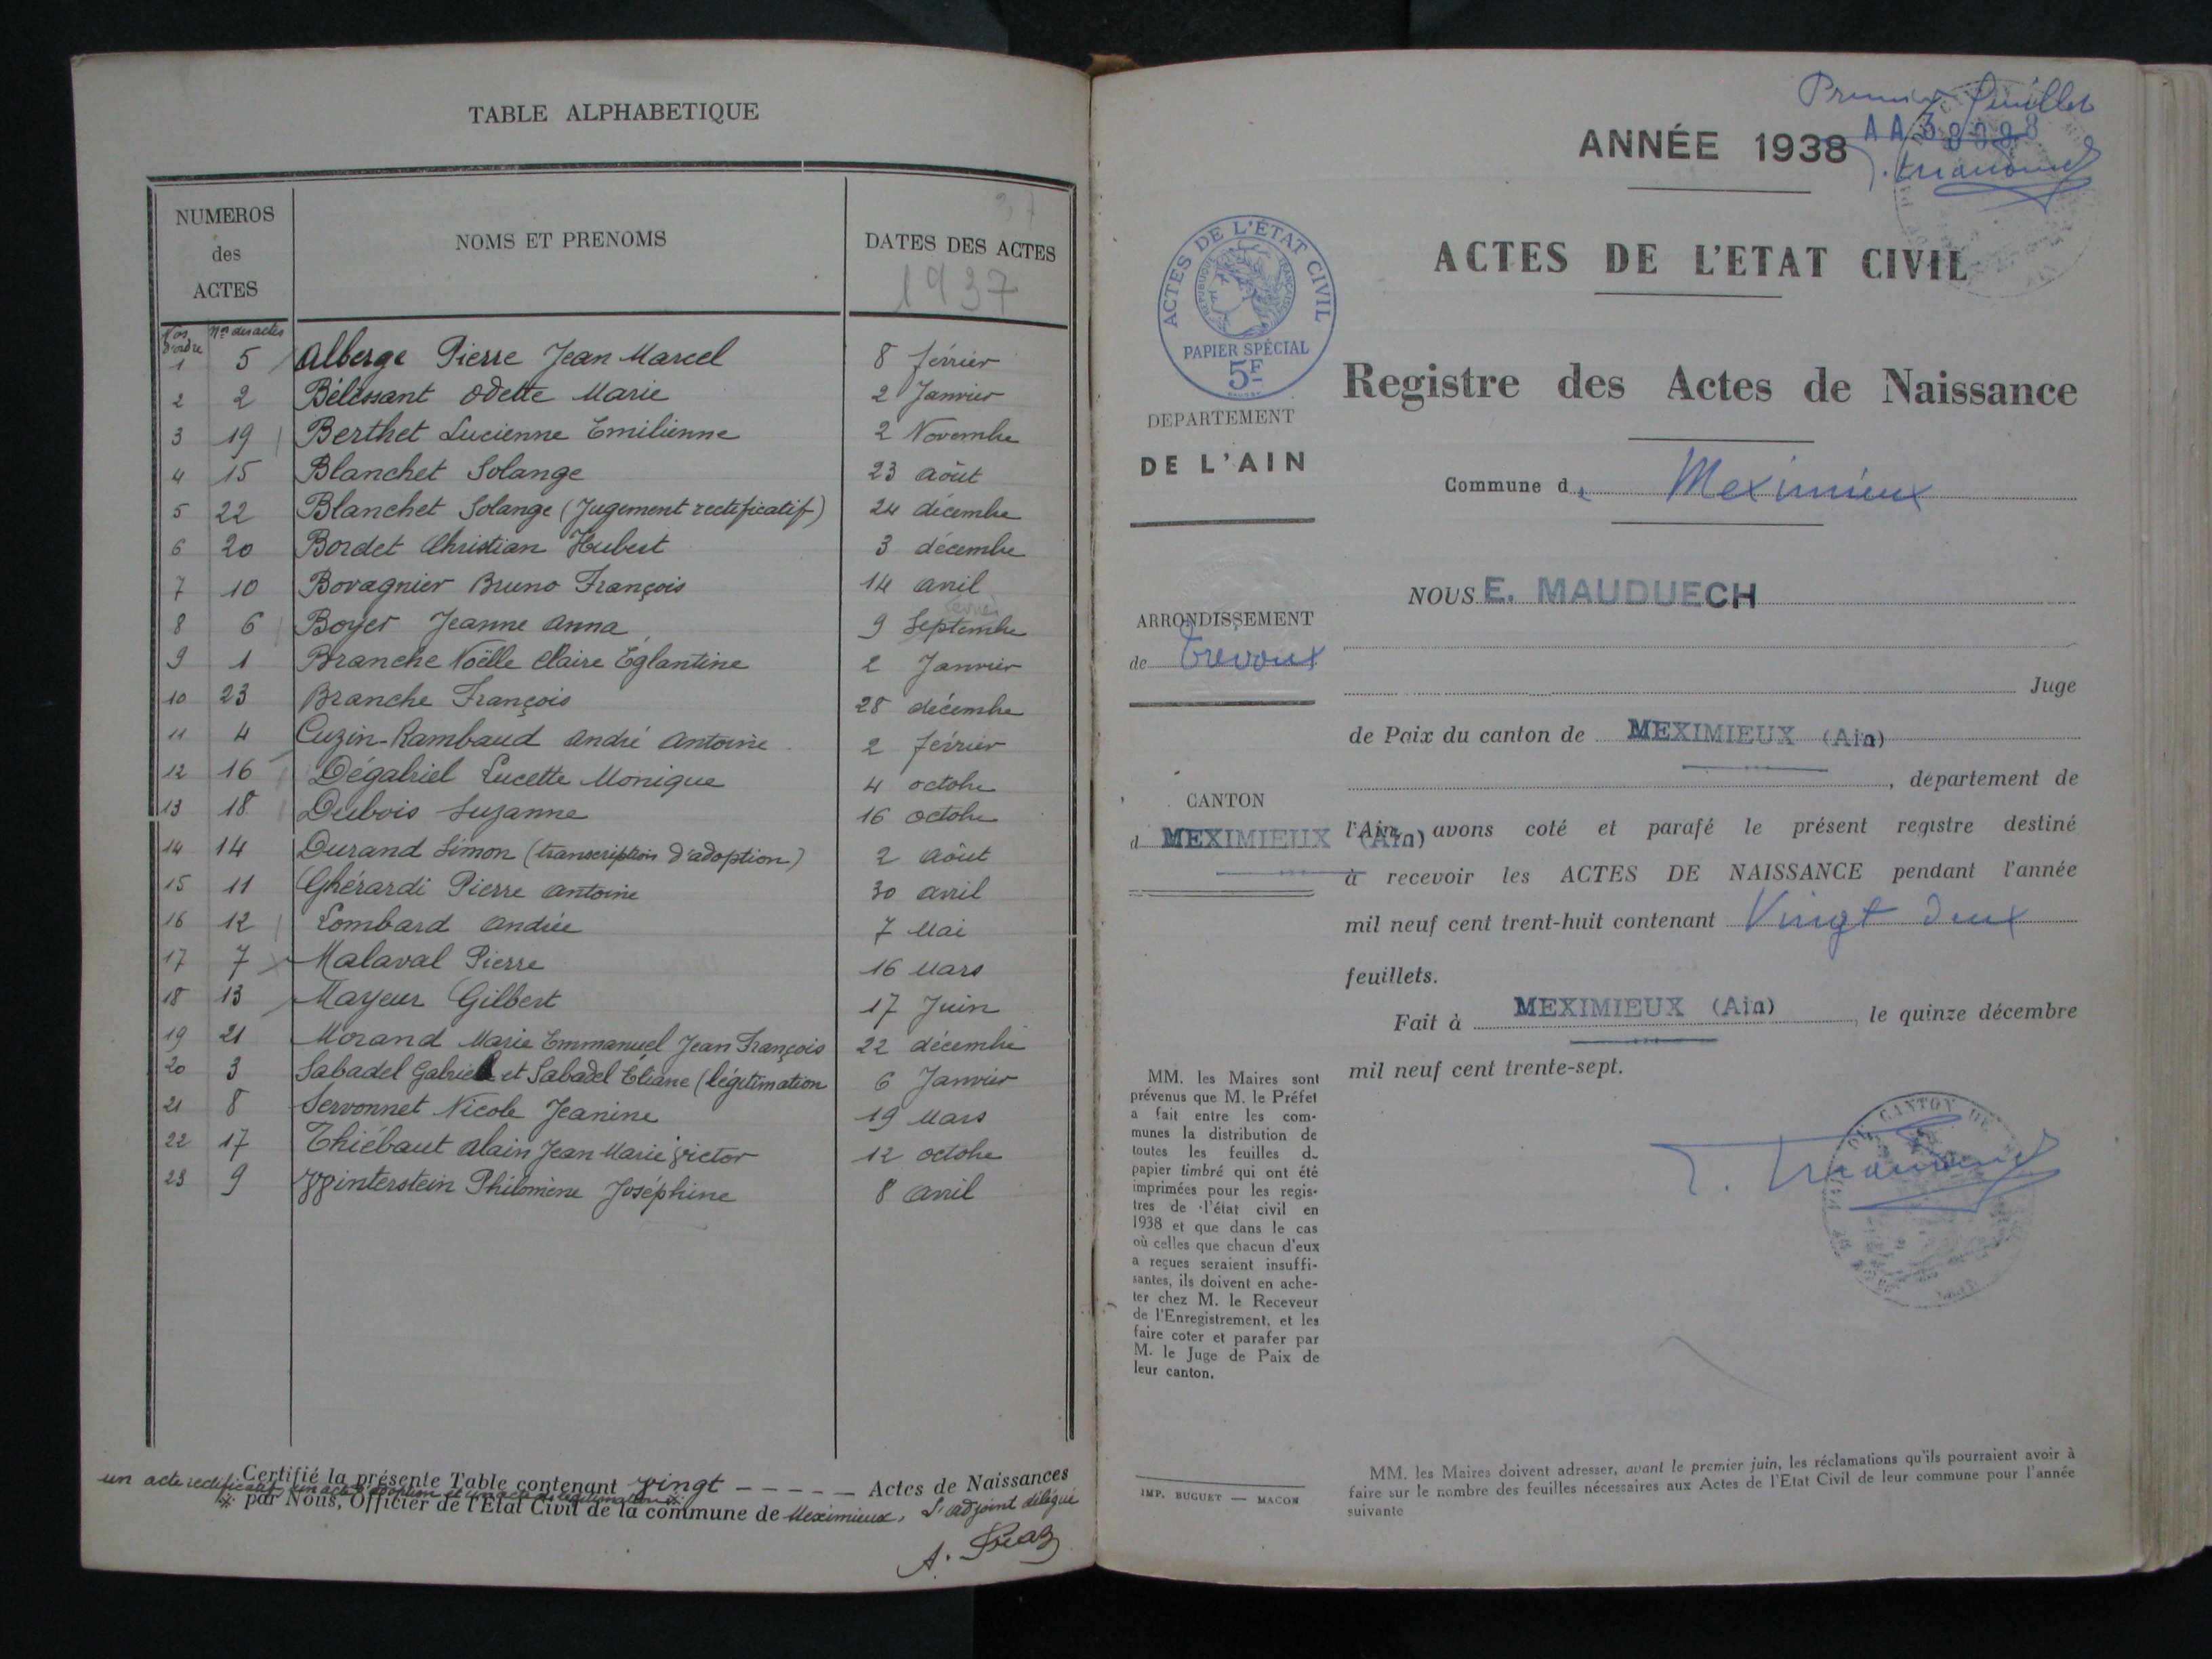 TABLE ALPHABETIQUE
NUMEROS
des
ACTES
NOMS ET PRENOMS
37
DATES DES ACTES
1937
Nos d'ordre Nos des actes
1 5 Alberge Pierre Jean Marcel 8 février
2 2 Bélessant Odette Marie 2 Janvier
3 19 Berthet Lucienne Emilienne 2 Novembre
4 15 Blanchet Solange 23 août
5 22 Blanchet Solange (Jugement rectificatif) 24 décembre
6 20 Bordet Christian Hubert 3 décembre
7 10 Bovagnier Bruno François 14 avril
8 6 Boyer Jeanne Anna 9 Septembre
9 1 Branche Noëlle Claire Eglantine 2 Janvier
10 23 Branche François 28 décembre
11 4 Cuzin-Rambaud André Antoine 2 février
12 16 Dégabriel Lucette Monique 4 octobre
13 18 Dubois Suzanne 16 octobre
14 14 Durand Simon (transcription d'adoption) 2 août
15 11 Ghérardi Pierre Antoine 30 avril
16 12 Lombard Andrée 7 Mai
17 7 Malaval Pierre 16 Mars
18 13 Mayeur Gilbert 17 Juin
19 21 Morand Marie Emmanuel Jean François 22 décembre
20 3 Sabadel Gabriel et Sabadel Eliane (légitimation 6 Janvier
21 8 Servonnet Nicole Jeanine 19 Mars
22 17 Thiébaut Alain Jean-Marie Victor 12 octobre
23 9 Winterstein Philomène Joséphine 8 avril
Certifié la présente Table contenant vingt - - - - - Actes de Naissances
un acte rectificatif, un acte d'adoption et un acte de légitimation
par Nous, Officier de l'Etat Civil de la commune de Meximieux, L'adjoint délégué
Premier feuillet
ANNÉE 1938
ACTES DE L'ETAT CIVIL
ACTES DE L'ÉTAT CIVIL
RÉPUBLIQUE FRANÇAISE
PAPIER SPÉCIAL
5F
Registre des Actes de Naissance
DEPARTEMENT
DE L'AIN
Commune de Meximieux
NOUS E. MAUDUECH
ARRONDISSEMENT
de Trévoux
Juge
de Paix du canton de MEXIMIEUX (Ain)
, département de
CANTON
d MEXIMIEUX (Ain)
l'Ain, avons coté et parafé le présent registre destiné
à recevoir les ACTES DE NAISSANCE pendant l'année
mil neuf cent trent-huit contenant Vingt deux
feuillets.
Fait à MEXIMIEUX (Ain), le quinze décembre
mil neuf cent trente-sept.
MM. les Maires sont
prévenus que M. le Préfet
a fait entre les com-
munes la distribution de
toutes les feuilles de
papier timbré qui ont été
imprimées pour les regis-
tres de l'état civil en
1938 et que dans le cas
où celles que chacun d'eux
a reçues seraient insuffi-
santes, ils doivent en ache-
ter chez M. le Receveur
de l'Enregistrement, et les
faire coter et parafer par
M. le Juge de Paix de
leur canton.
CANTON DE
IMP. BUGUET — MACON
MM. les Maires doivent adresser, avant le premier juin, les réclamations qu'ils pourraient avoir à
faire sur le nombre des feuilles nécessaires aux Actes de l'Etat Civil de leur commune pour l'année
suivante